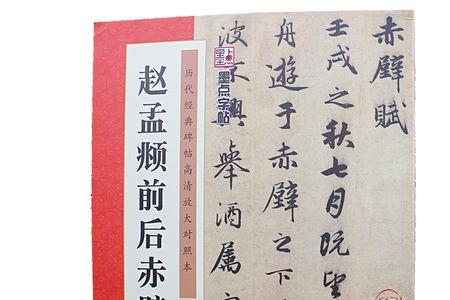 赤壁賦
壬戌之秋七月既望
舟遊于赤壁之下
波不興舉酒屬
墨点
墨点字帖
历代经典碑帖高清放大对照本
赵孟𫖯前后赤壁